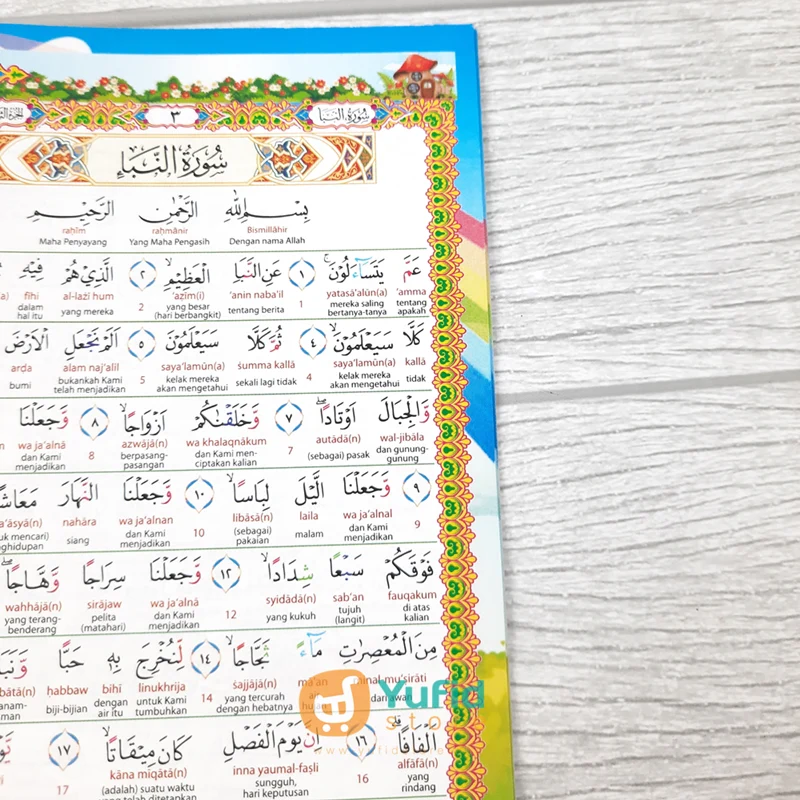 سُورَةُ النَّبَا ٣
سُورَةُ النَّبَاِ
بِسْمِ اللّٰهِ الرَّحْمٰنِ الرَّحِيْمِ
Bismillāhir raḥmānir raḥīm
Dengan nama Allah Yang Maha Pengasih Maha Penyayang
عَمَّ يَتَسَاۤءَلُوْنَۚ ١ عَنِ النَّبَاِ الْعَظِيْمِۙ ٢ الَّذِيْ هُمْ فِيْهِ
'amma yatasā'alūn(a) 1 'anin naba'il 'aẓīm(i) 2 al-lażī hum fīhi
tentang apakah mereka saling bertanya-tanya tentang berita yang besar (hari berbangkit) yang mereka dalam hal itu
كَلَّا سَيَعْلَمُوْنَۙ ٤ ثُمَّ كَلَّا سَيَعْلَمُوْنَ ٥ اَلَمْ نَجْعَلِ الْاَرْضَ
kallā saya'lamūn(a) 4 ṡumma kallā saya'lamūn(a) 5 alam naj'alil arḍa
tidak kelak mereka akan mengetahui sekali lagi tidak kelak mereka akan mengetahui bukankah Kami telah menjadikan bumi
وَّالْجِبَالَ اَوْتَادًاۖ ٧ وَّخَلَقْنٰكُمْ اَزْوَاجًاۙ ٨ وَّجَعَلْنَا
wal-jibāla autādā(n) 7 wa khalaqnākum azwājā(n) 8 wa ja'alnā
dan gunung-gunung (sebagai) pasak dan Kami menciptakan kalian berpasang-pasangan dan Kami menjadikan
٩ وَّجَعَلْنَا الَّيْلَ لِبَاسًاۙ ١٠ وَّجَعَلْنَا النَّهَارَ مَعَاشًا
9 wa ja'alnal laila libāsā(n) 10 wa ja'alnan nahāra
dan Kami menjadikan malam (sebagai) pakaian dan Kami menjadikan siang
فَوْقَكُمْ سَبْعًا شِدَادًاۙ ١٢ وَّجَعَلْنَا سِرَاجًا وَّهَّاجًاۖ
fauqakum sab'an syidādā(n) 12 wa ja'alnā sirājaw wahhājā(n)
di atas kalian tujuh (langit) yang kukuh dan Kami menjadikan pelita (matahari) yang terang-benderang
مِنَ الْمُعْصِرٰتِ مَاۤءً ثَجَّاجًاۙ ١٤ لِّنُخْرِجَ بِهٖ حَبًّا
mā'an ṡajjājā(n) 14 linukhrija bihī ḥabbaw
yang tercurah dengan hebatnya untuk Kami tumbuhkan dengan air itu biji-bijian
اَلْفَافًاۗ ١٦ اِنَّ يَوْمَ الْفَصْلِ كَانَ مِيْقَاتًاۙ ١٧
alfāfā(n) 16 inna yaumal-faṣli kāna mīqātā(n) 17
yang rindang sungguh, hari keputusan (adalah) suatu waktu yang telah ditetapkan
Yufid
store